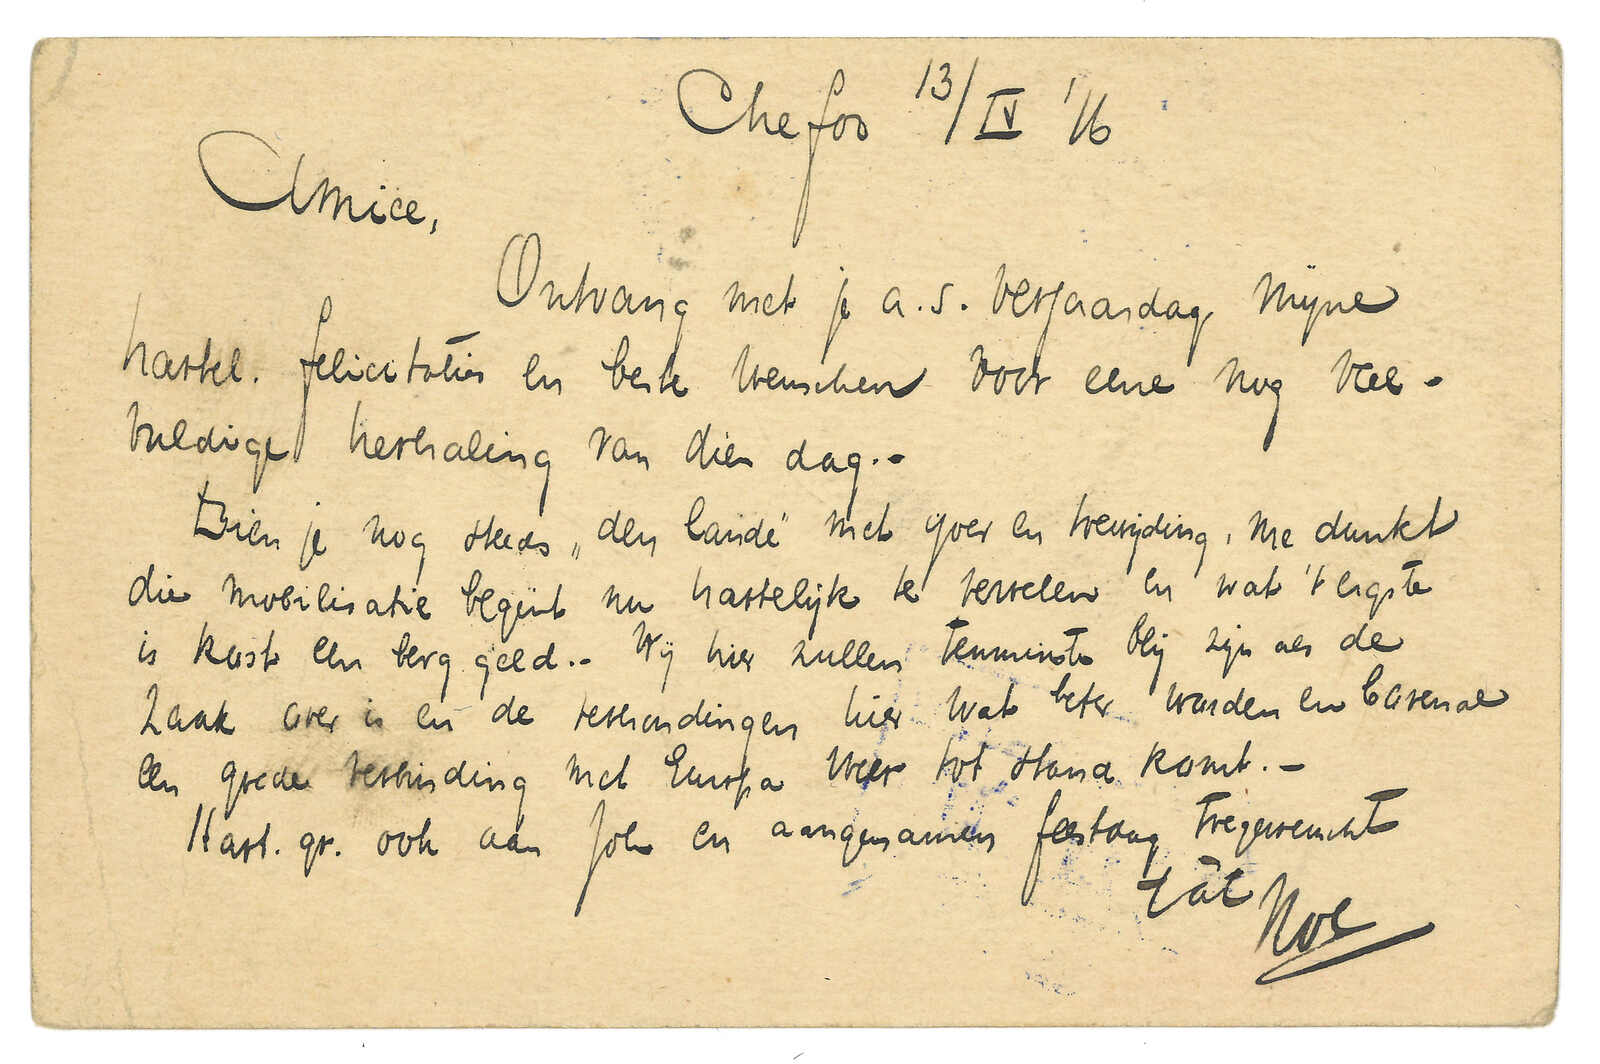 Chefoo 13/IV '16
Amice,
Ontvang met je a.s. verjaardag mijne
hartel. felicitaties en beste wenschen voor eene nog vee-
vuldige herhaling van dien dag.-
Dien je nog steeds „den lande" met yver en toewijding, me dunkt
die mobilisatie begint nu hartelijk te vervelen en wat 't ergste
is kost een berg geld.- Wij hier zullen tenminste blij zijn als de
zaak over is en de verhoudingen hier wat beter worden en bovenal
een goede verbinding met Europa weer tot stand komt.-
Hart. gr. ook aan Joh en aangenamen feestdag toegewenscht
t.àt